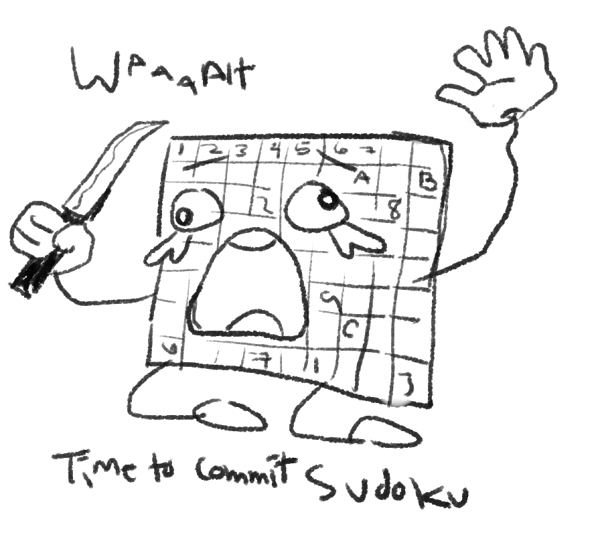 WAAAAlt
1 2 3 4 5 6 7
A B
2 8
9
C
6 7 1 3
Time to commit Sudoku